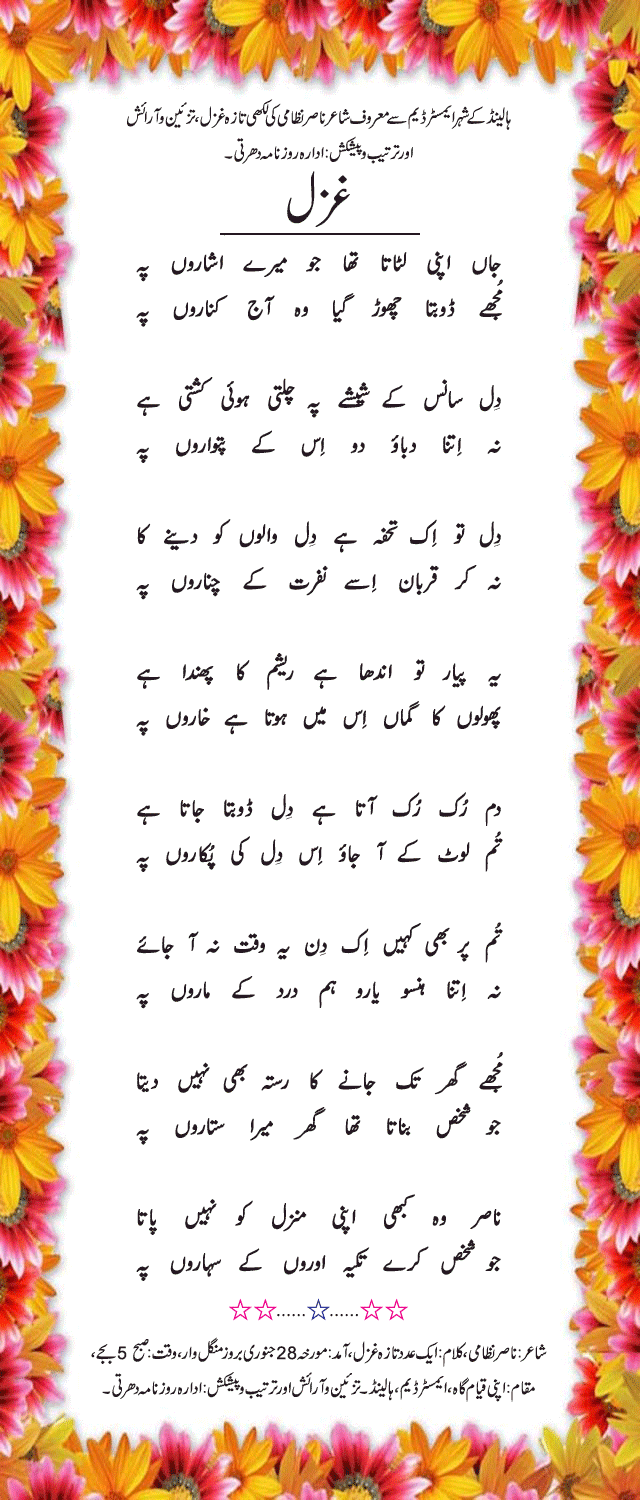 ہالینڈ کے شہر ایمسٹرڈیم سے معروف شاعر ناصر نظامی کی لکھی تازہ غزل، تزئین و آرائش
اور ترتیب و پیشکش: ادارہ روزنامہ دھرتی۔
غزل
جاں اپنی لٹاتا تھا جو میرے اشاروں پہ
مُجھے ڈوبتا چھوڑ گیا وہ آج کناروں پہ
دِل سانس کے شیشے پہ چلتی ہوئی کشتی ہے
نہ اِتنا دباؤ دو اِس کے پتواروں پہ
دِل تو اِک تحفہ ہے دِل والوں کو دینے کا
نہ کر قربان اِسے نفرت کے چناروں پہ
یہ پیار تو اندھا ہے ریشم کا پھندا ہے
پھولوں کا گماں اِس میں ہوتا ہے خاروں پہ
دم رُک رُک آتا ہے دِل ڈوبتا جاتا ہے
تُم لوٹ کے آ جاؤ اِس دِل کی پُکاروں پہ
تُم پر بھی کہیں اِک دِن یہ وقت نہ آ جائے
نہ اِتنا ہنسو یارو ہم درد کے ماروں پہ
مُجھے گھر تک جانے کا رستہ بھی نہیں دیتا
جو شخص بناتا تھا گھر میرا ستاروں پہ
ناصر وہ کبھی اپنی منزل کو نہیں پاتا
جو شخص کرے تکیہ اوروں کے سہاروں پہ
☆☆......☆......☆☆
شاعر: ناصر نظامی، کلام: ایک عدد تازہ غزل، آمد: مورخہ 28 جنوری بروز منگل وار، وقت: صبح 5 بجے،
مقام: اپنی قیام گاہ، ایمسٹرڈیم، ہالینڈ۔ تزئین و آرائش اور ترتیب و پیشکش: ادارہ روزنامہ دھرتی۔